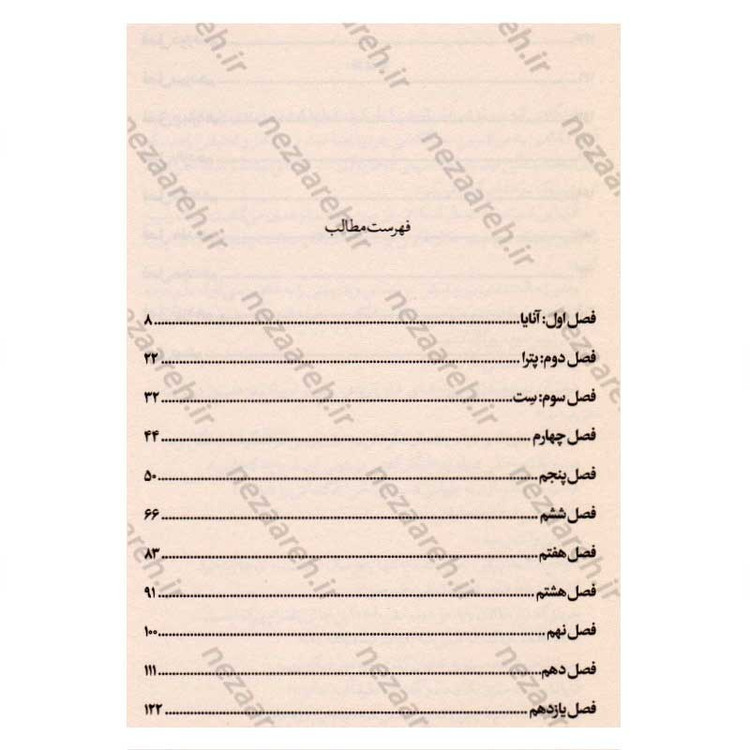 فهرست مطالب
فصل اول: آنایا ۸
فصل دوم: پترا ۲۲
فصل سوم: سِت ۳۲
فصل چهارم ۴۴
فصل پنجم ۵۰
فصل ششم ۶۶
فصل هفتم ۸۳
فصل هشتم ۹۱
فصل نهم ۱۰۰
فصل دهم ۱۱۱
فصل یازدهم ۱۲۲
nezaareh.ir